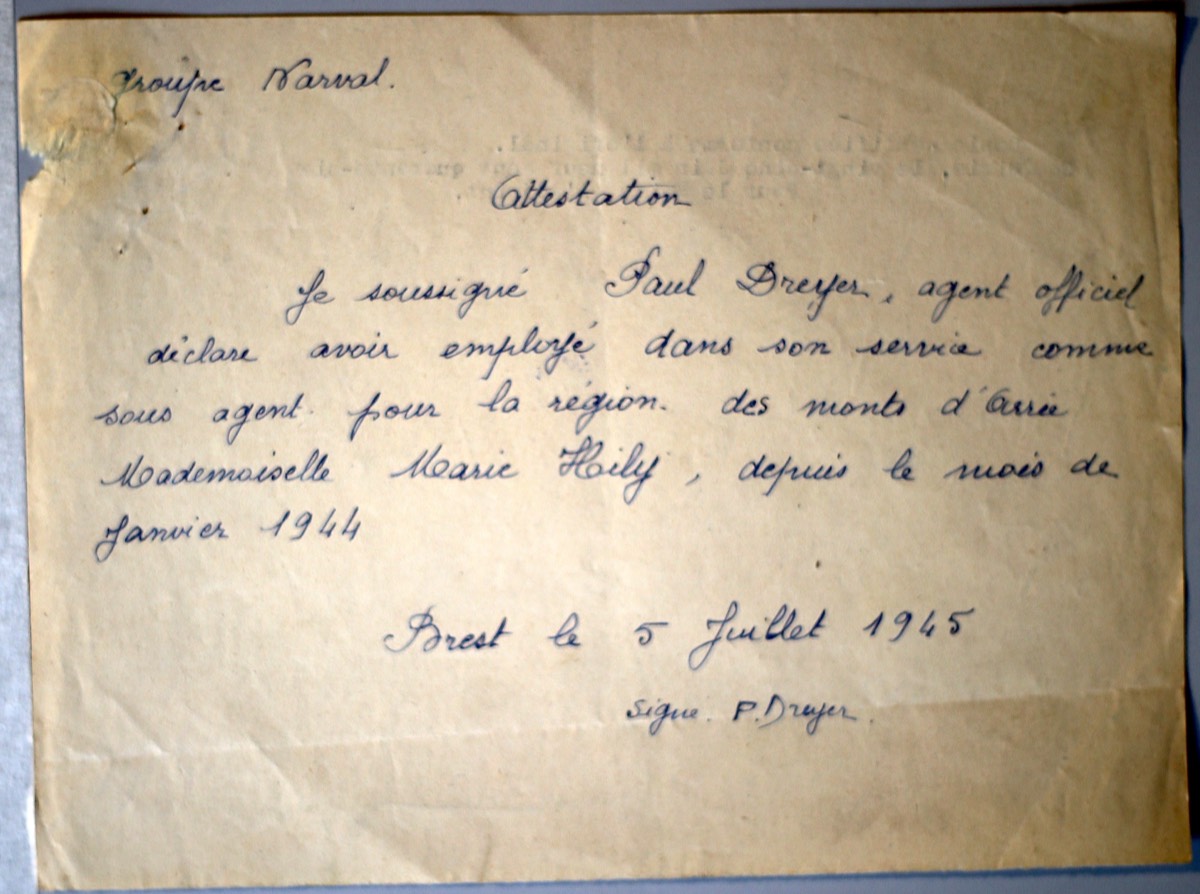 Groupe Narval.
Attestation
Je soussigné Paul Dreyer, agent officiel
déclare avoir employé dans son service comme
sous agent pour la région des monts d'Arrée
Mademoiselle Marie Hily, depuis le mois de
Janvier 1944
Brest le 5 Juillet 1945
Signe. P. Dreyer.